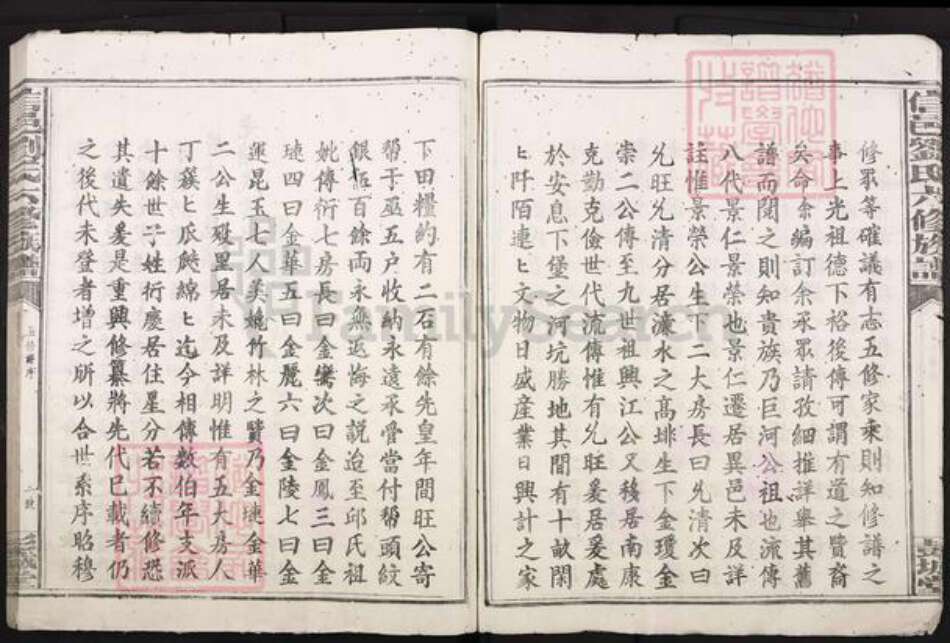 信邑劉氏六修族譜
修眾等確議有志五修家乘則知修譜之
事上光祖德下裕後傳可謂有道之賢裔
矣命余編訂余承眾請孜細推詳舉其舊
譜而閱之則知貴族乃巨河公祖也流傳
八代景仁景榮也景仁遷居異邑未及詳
註惟景榮公生下二大房長曰兊清次曰
兊旺兊清分居濂水之高排生下金瓊金
崇二公傳至九世祖興江公又移居南康
克勤克儉世代流傳惟有兊旺爰居爰處
於安息下堡之河坑勝地其間有十畝閑
匕阡陌連匕文物日盛産業日興計之家
下田糧約有二石有餘先皇年間旺公寄
帮于巫五户收納永遠承管當付帮頭紋
銀 百餘両永無返悔之説迨至邱氏祖
妣傳衍七房長曰金鸞次曰金鳳三曰金
璉四曰金華五曰金麗六曰金陵七曰金
運昆玉七人美媲竹林之賢乃金璉金華
二公生殁里居未及詳明惟有五大房人
丁蔟匕瓜瓞綿匕迄今相傳数伯年支派
十餘世子姓衍慶居住星分若不續修恐
其遺失爰是重興修纂將先代已載者仍
之後代未登者增之庶以合世系序昭穆
五修譜序
二號
FamilySearch